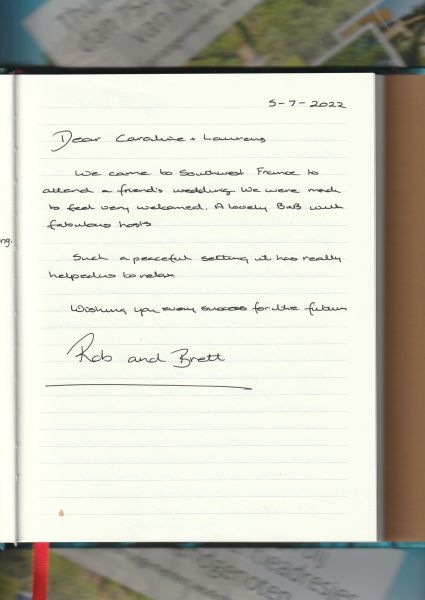 5-7-2022
Dear Caroline + Laurens
We came to Southwest France to
attend a friend's wedding. We were made
to feel very welcomed. A lovely BnB with
fabulous hosts
Such a peaceful setting it has really
helped us to relax
Wishing you every success for the future
Rob and Brett
ng.